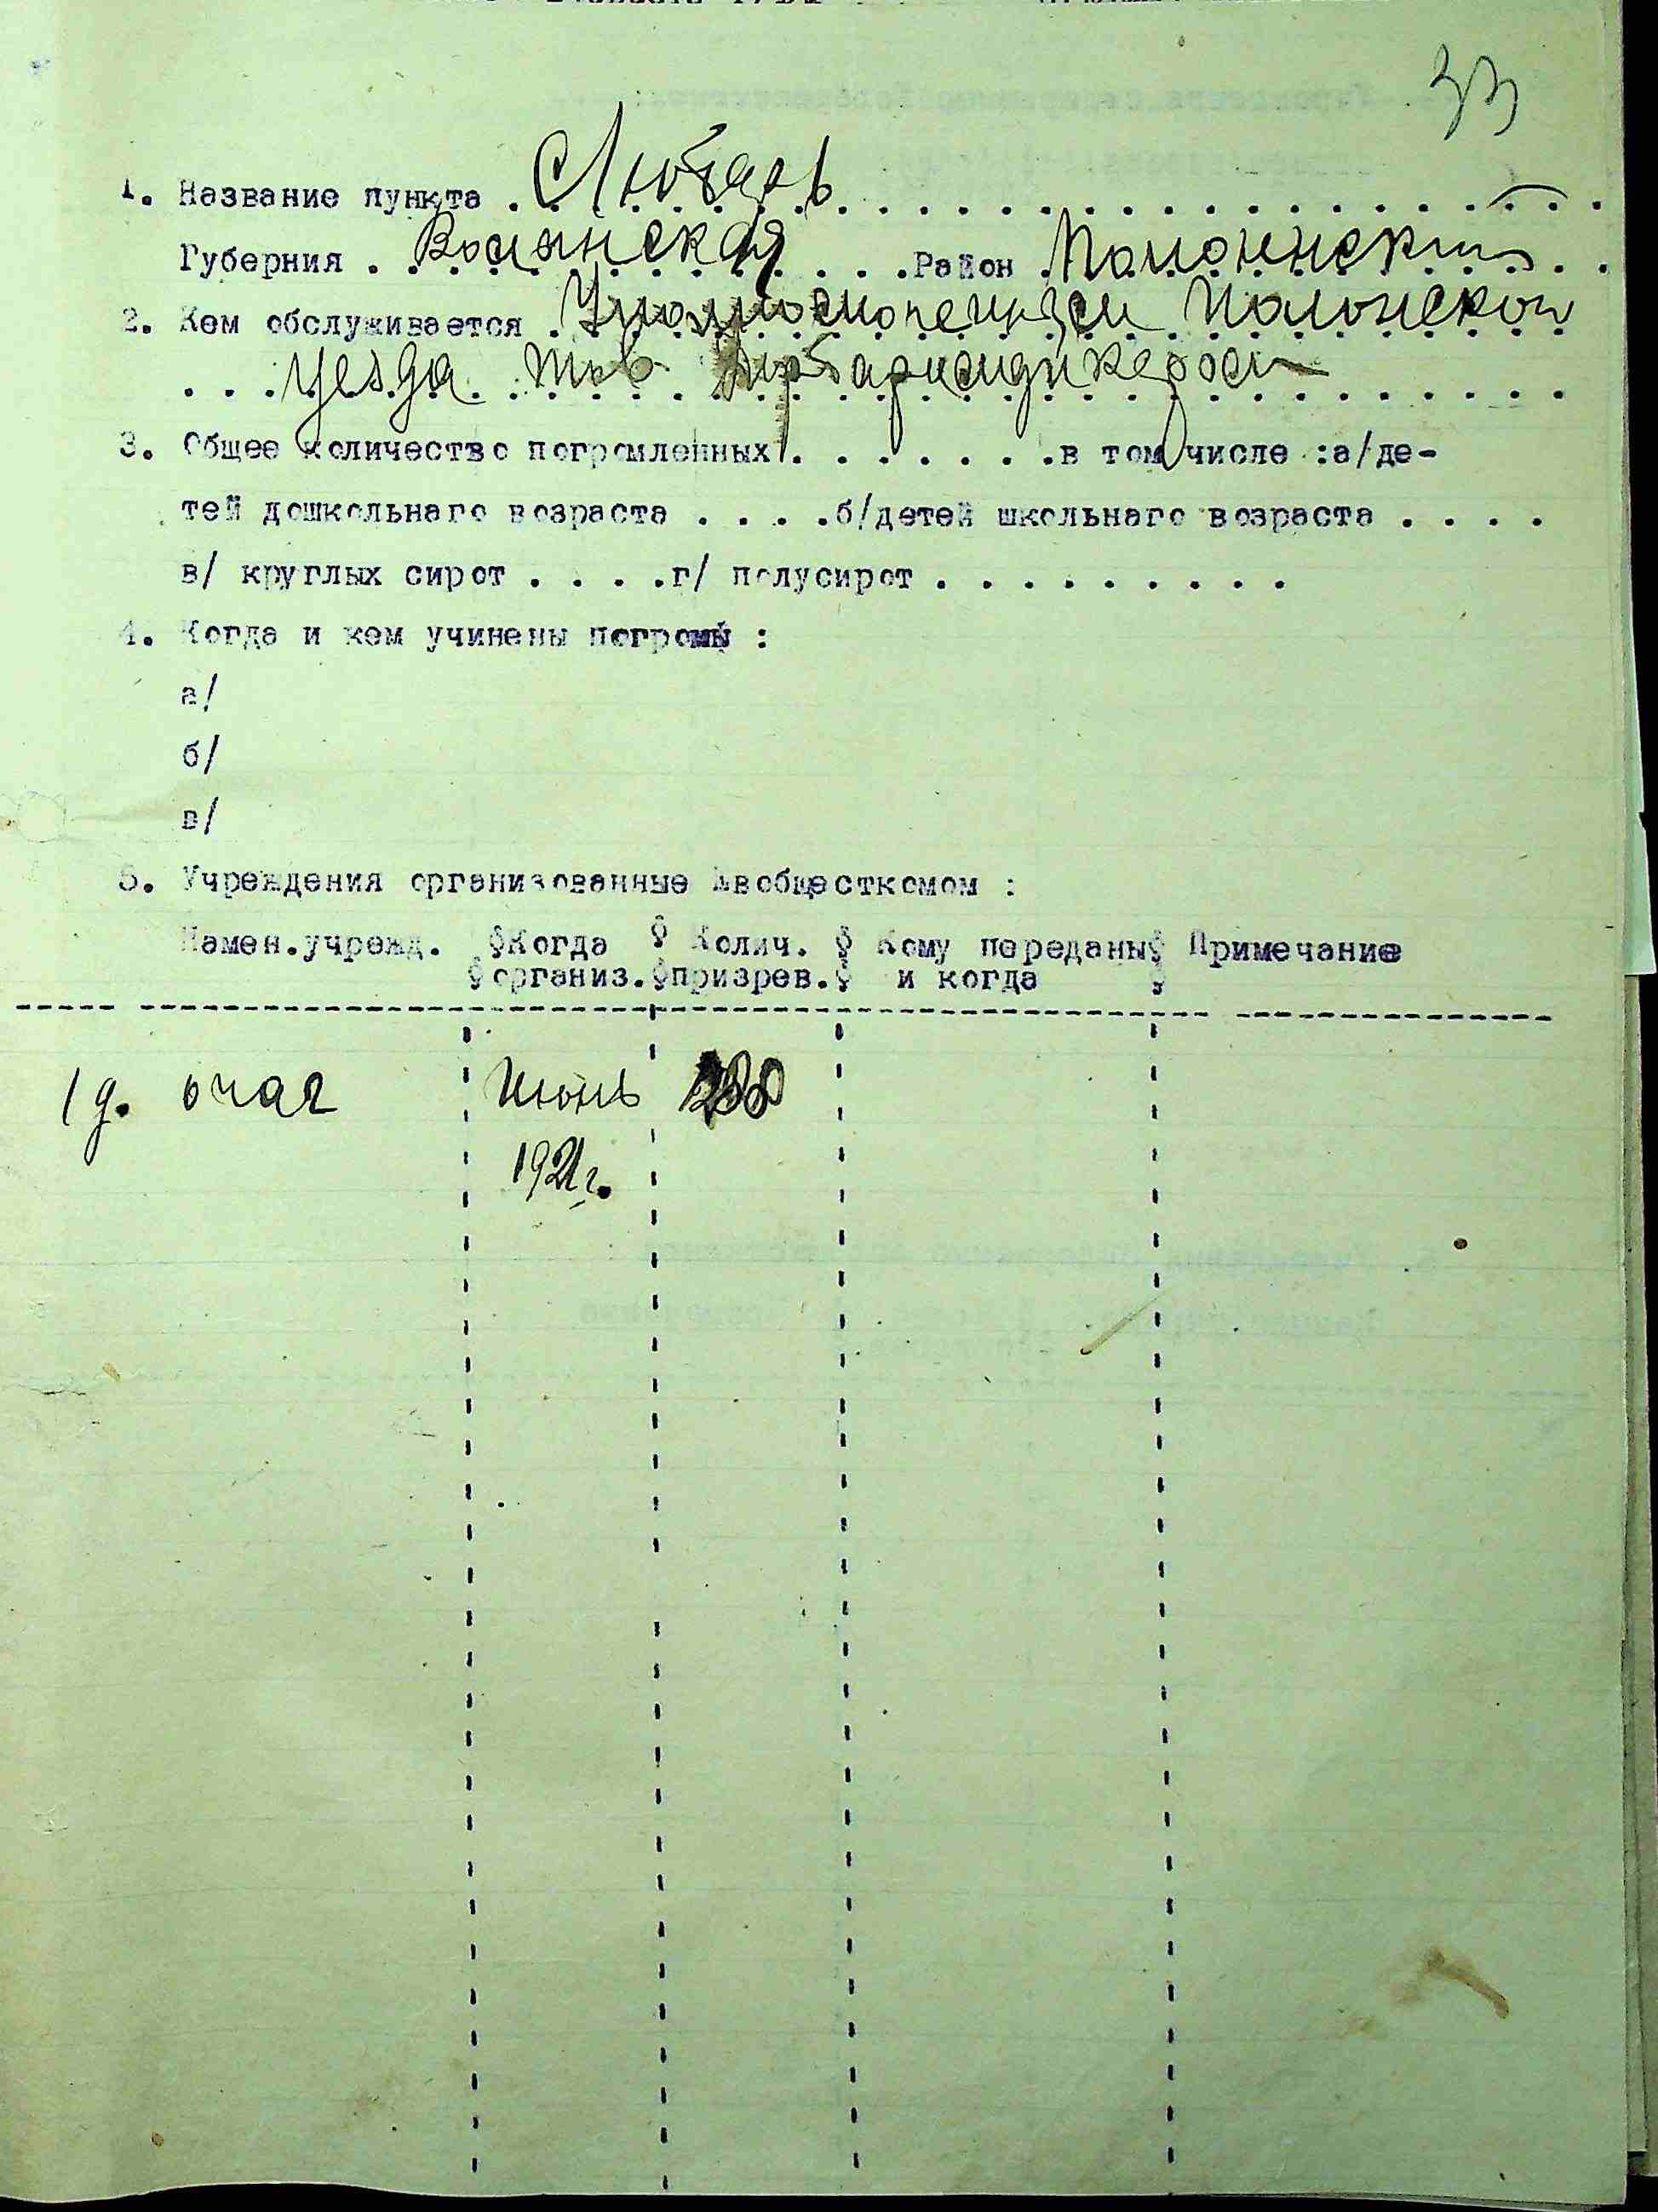 33
1. Название пункта . Любарь
Губерния . Волынская . . . Район . Полоннский . .
2. Кем обслуживается . Полонской
. . . уезда тов
3. Общее количество погромленных . . . . . . . в том числе :а/де-
тей дошкольнаго возраста . . . .б/детей школьнаго возраста . . . .
в/ круглых сирот . . . .г/ полусирот . . . . . . . . .
4. Когда и кем учинены погромы :
а/
б/
в/
5. Учреждения организованные Евобщесткомом :
Намен.учрежд. Когда Колич. Кому переданы Примечание
организ. призрев. и когда
1 д. очаг Июнь
1921г.